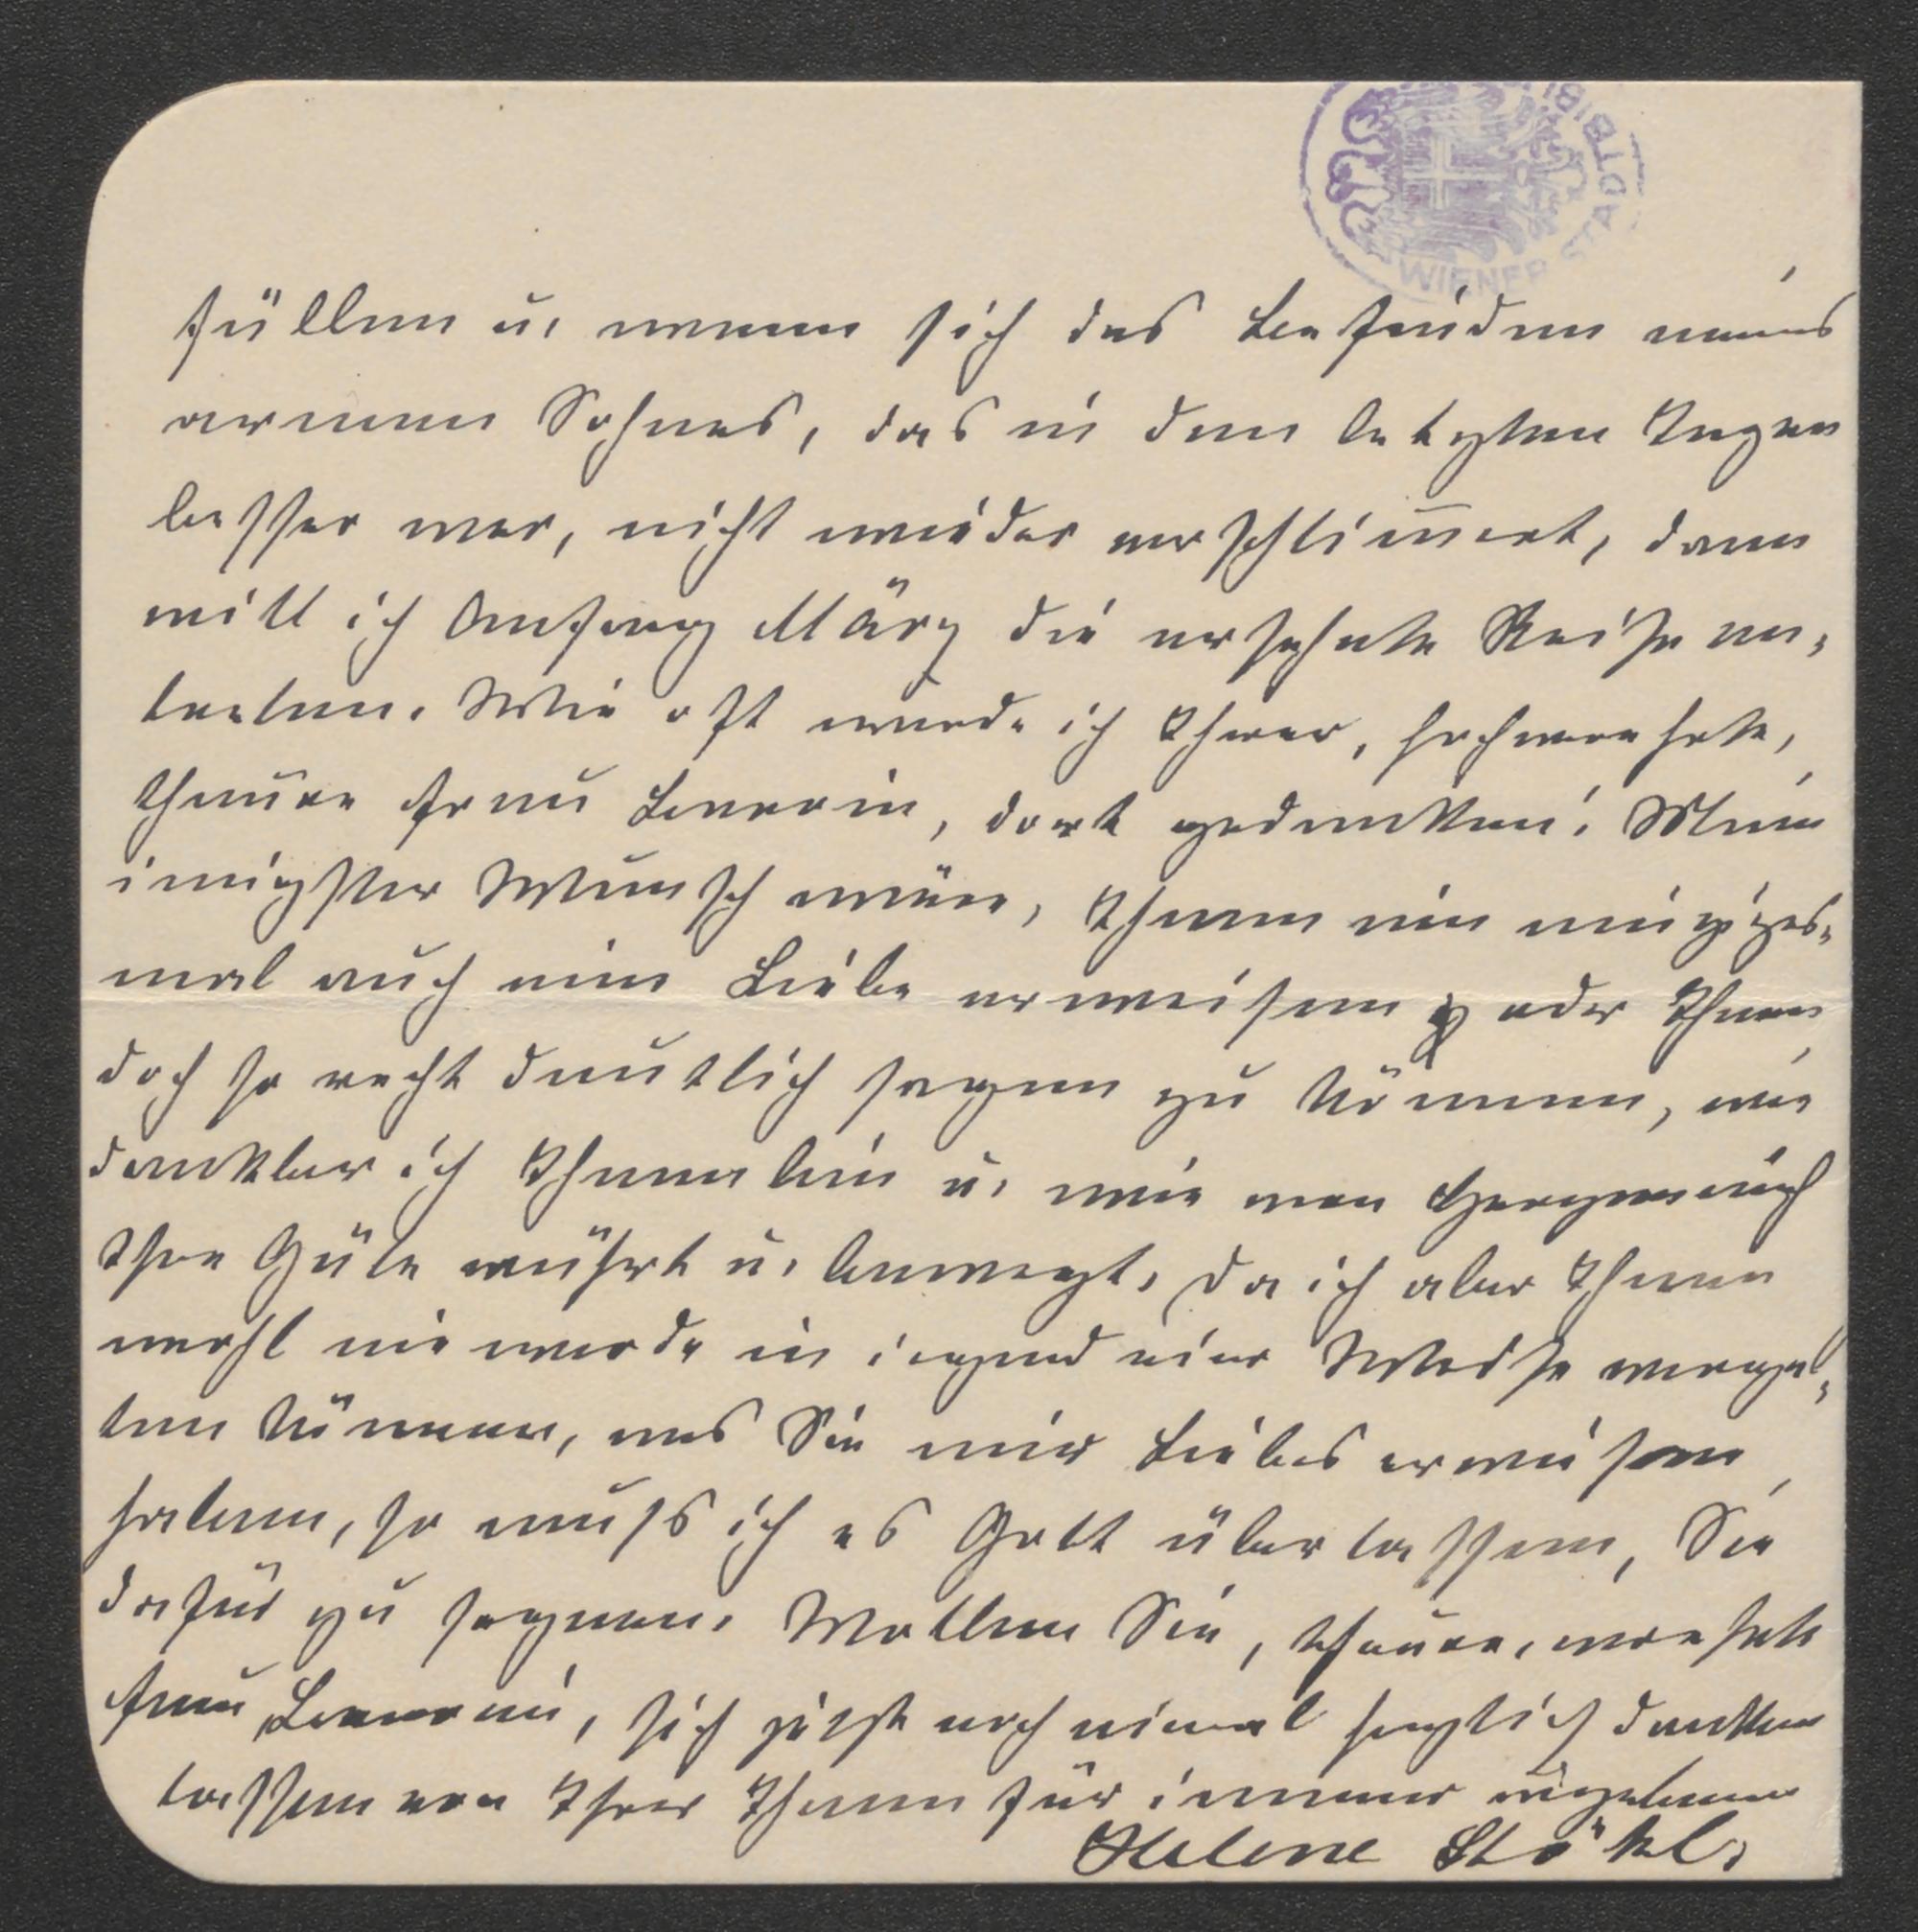 WIENER STADTBIBL
füllen u. wenn sich das Befinden meines
armen Sohnes, das in den letzten Tagen
besser war, nicht wieder verschlim̅ert, dann
will ich Anfang März die ersehnte Reise an-
treten. Wie oft werde ich Ihrer, hochverehrte,
theure Frau Baronin, dort gedenken! Mein
innigster Wunsch wäre, Ihnen ein einziges-
mal auch eine Liebe erweisen oder Ihnen
doch so recht deutlich sagen zu können, wie
dankbar ich Ihnen bin u. wie von Herzen mich
Ihre Güte rührt u. bewegt. Da ich aber Ihnen
wohl nie werde in irgend einer Weise vergel-
ten können, was Sie mir Liebes erwiesen
haben, so muß ich es Gott überlassen, Sie
dafür zu segnen. Wollen Sie, theure, verehrte
Frau Baronin, sich jetzt noch einmal herzlich danken
lassen von Ihrer Ihnen für immer ergebenen
Helene Stökl.